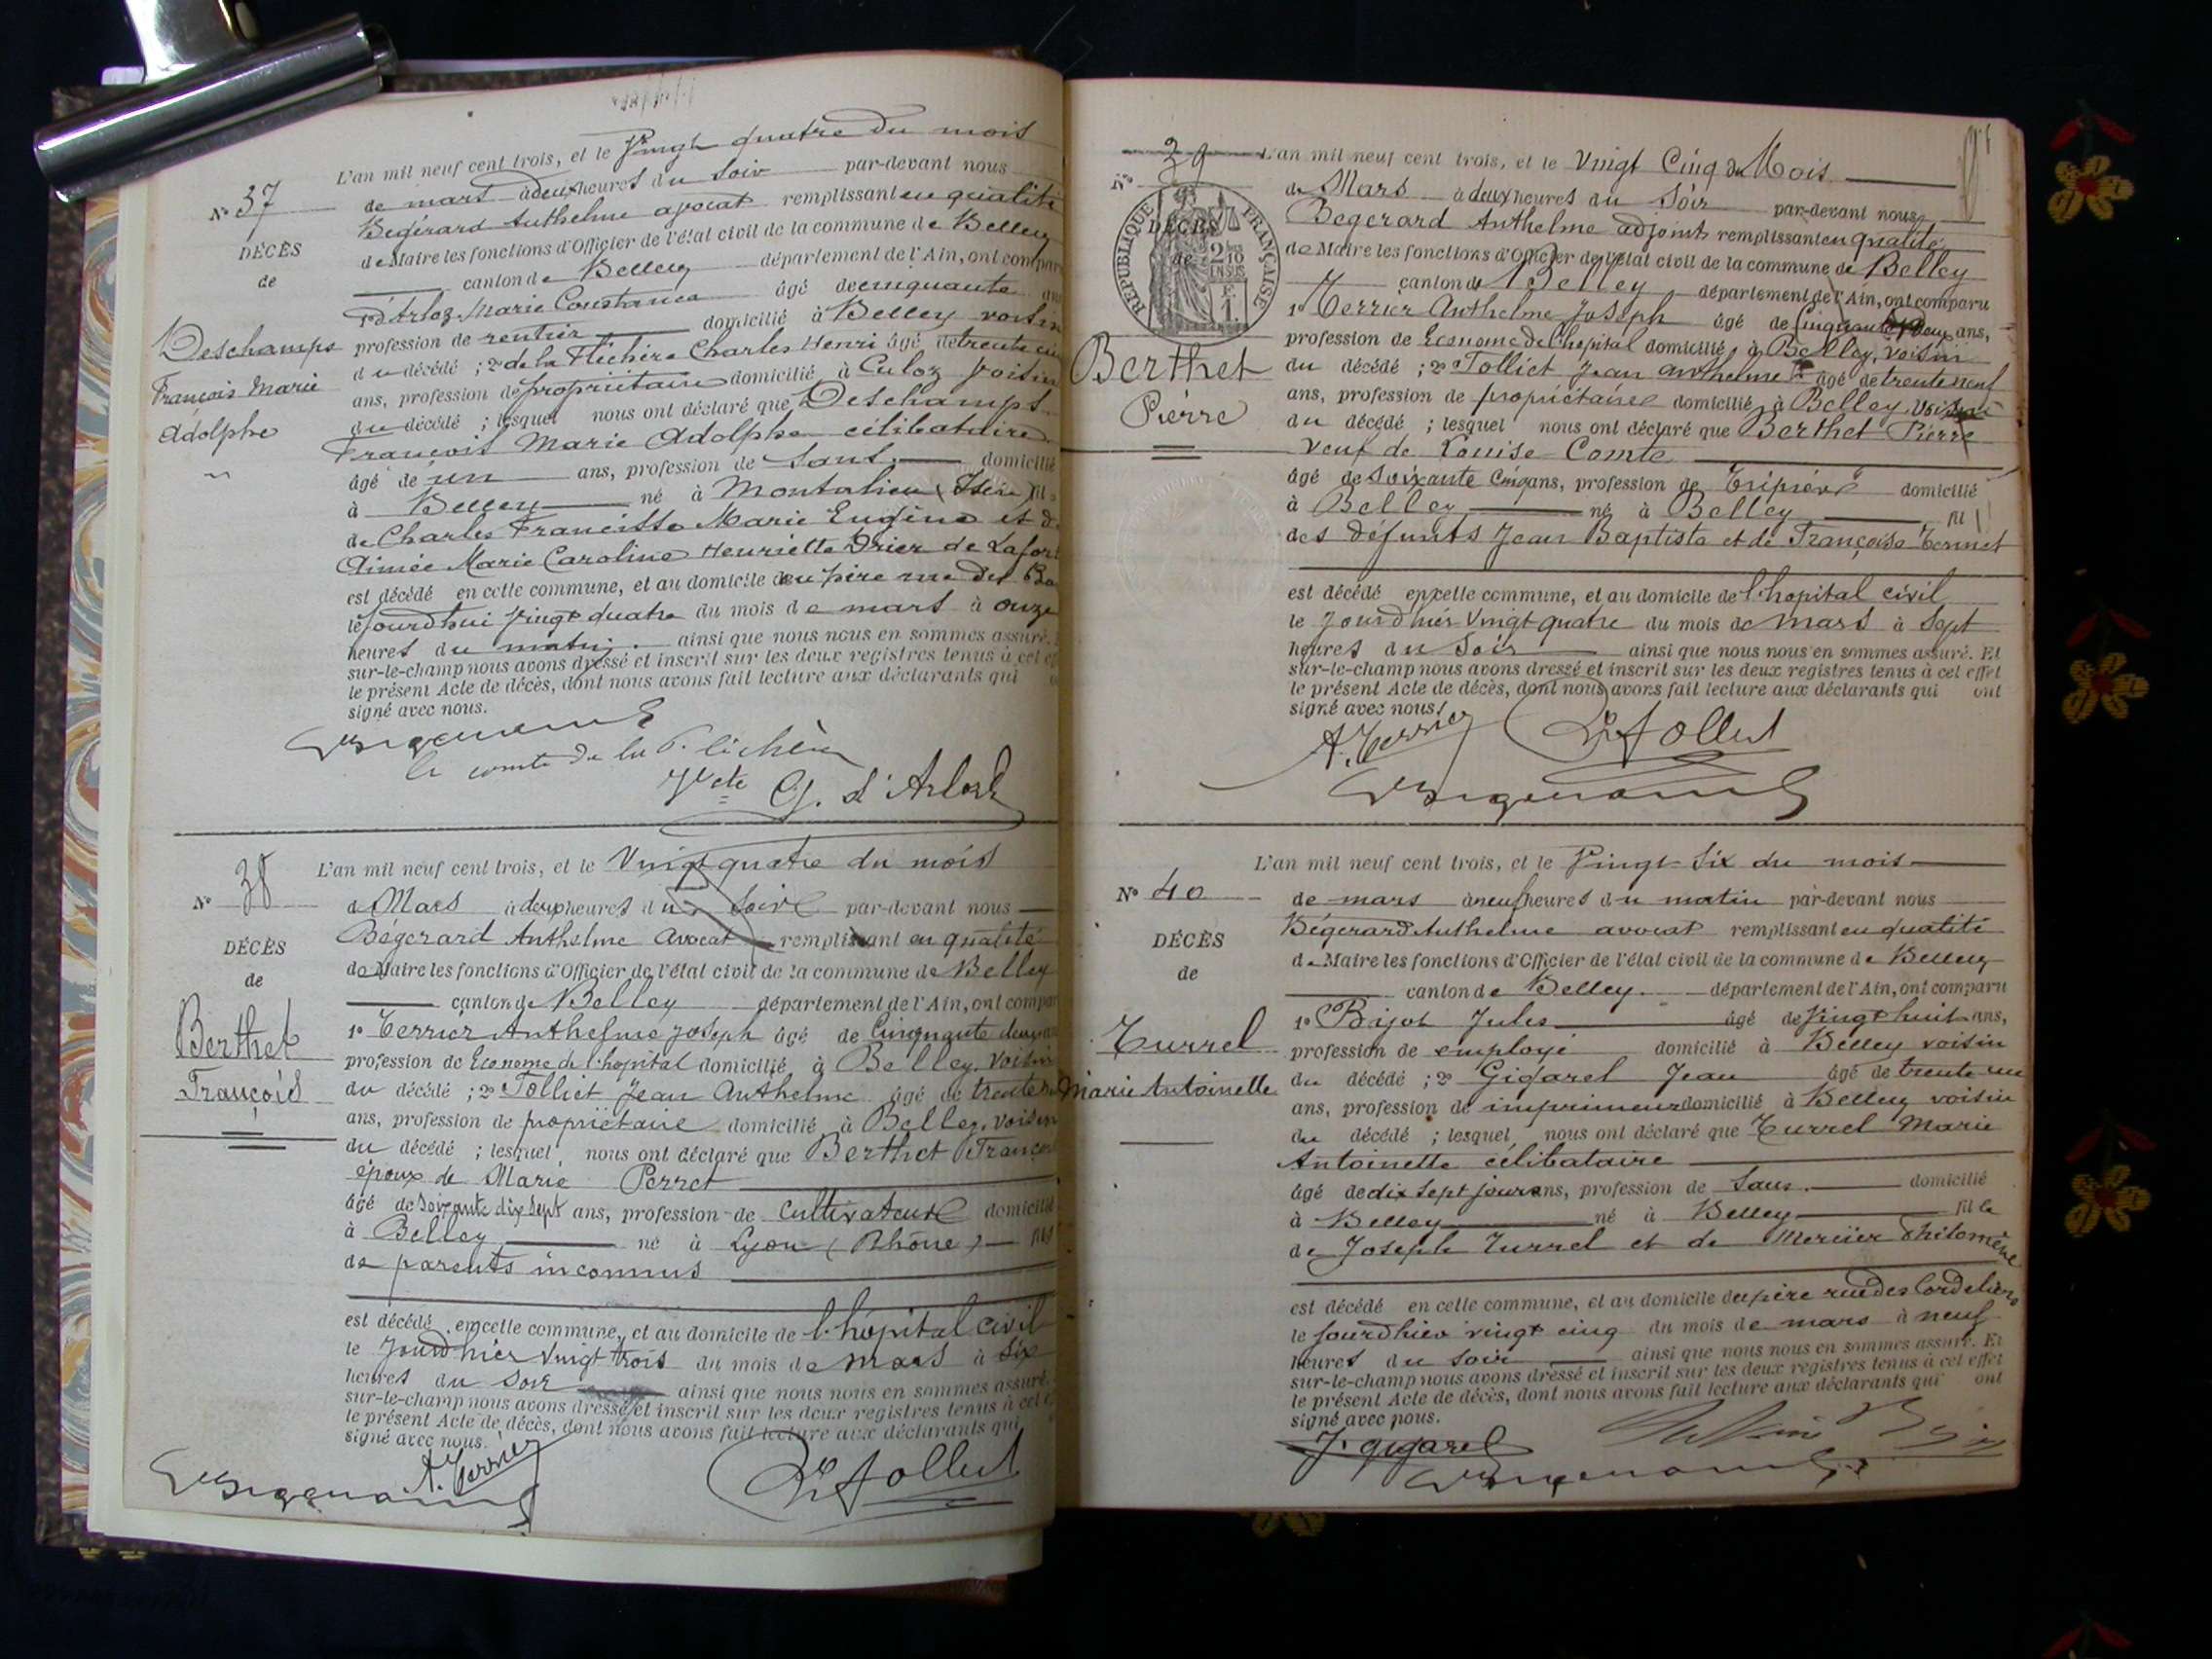 L'an mil neuf cent trois, et le Vingt quatre du mois
N° 37
de mars à deux heures du soir par-devant nous
Begérard Anthelme avocat remplissant en qualité
DÉCÈS
de Maire les fonctions d'Officier de l'état civil de la commune de Belley
de
canton de Belley département de l'Ain, ont compar
1° d'Arloz Marie Constance âgé de cinquante ans
Deschamps
profession de rentier domicilié à Belley voisin
François Marie
du décédé ; 2° de la Fléchère Charles Henri âgé de trente
Adolphe
ans, profession de propriétaire domicilié à Culoz voisin
du décédé ; lesquel nous ont déclaré que Deschamps
François Marie Adolphe célibataire
âgé de un ans, profession de sans domicilié
à Belley né à Montalieu (Isère) fil
de Charles Francisse Marie Eugène et d
Aimée Marie Caroline Henriette Drier de Lafor
est décédé en cette commune, et au domicile du père rue des Ba
le jourd'hui vingt quatre du mois de mars à onze
heures du matin ainsi que nous nous en sommes assuré.
sur-le-champ nous avons dressé et inscrit sur les deux registres tenus à cet
le présent Acte de décès, dont nous avons fait lecture aux déclarants qui
signé avec nous.
le comte de la Fléchère
Vcte G. d'Arloz
L'an mil neuf cent trois, et le Vingt quatre du mois
N° 38
de Mars à deux heures du soir par-devant nous
Begerard Anthelme Avocat remplissant en qualité
DÉCÈS
de Maire les fonctions d'Officier de l'état civil de la commune de Belley
de
canton de Belley département de l'Ain, ont compar
Berthet
1° Terrier Anthelme Joseph âgé de Cinquante deux
profession de Econome de l'hopital domicilié à Belley, voisin
François
du décédé ; 2° Tolliet Jean Anthelme âgé de trente
ans, profession de propriétaire domicilié à Belley, voisin
du décédé ; lesquel nous ont déclaré que Berthet Franço
époux de Marie Perret
âgé de soixante dix sept ans, profession de cultivateur domicilié
à Belley né à Lyon (Rhône) fils
de parents inconnus
est décédé en cette commune, et au domicile de l'hôpital civil
le Jourd'hier Vingt trois du mois de mars à six
heures du soir ainsi que nous nous en sommes assuré.
sur-le-champ nous avons dressé et inscrit sur les deux registres tenus à cet
le présent Acte de décès, dont nous avons fait lecture aux déclarants qui
signé avec nous.
A. Terrier
Tolliet
N° 39
L'an mil neuf cent trois, et le Vingt Cinq du Mois
de Mars à deux heures du Soir par-devant nous
RÉPUBLIQUE FRANÇAISE
DÉCÈS
de
Begerard Anthelme adjoint remplissant en qualité
de Maire les fonctions d'Officier de l'état civil de la commune de Belley
canton de Belley département de l'Ain, ont comparu
1° Terrier Anthelme Joseph âgé de Cinquante deux ans,
profession de Econome de l'hopital domicilié à Belley, voisin
Berthet
du décédé ; 2° Tolliet Jean Anthelme âgé de trente neuf
Pierre
ans, profession de propriétaire domicilié à Belley, voisin
du décédé ; lesquel nous ont déclaré que Berthet Pierre
veuf de Louise Comte
âgé de soixante cinq ans, profession de Tripier domicilié
à Belley né à Belley fil
des défunts Jean Baptiste et de Françoise
est décédé en cette commune, et au domicile de l'hopital civil
le Jourd'hier Vingt quatre du mois de mars à Sept
heures du Soir ainsi que nous nous en sommes assuré. Et
sur-le-champ nous avons dressé et inscrit sur les deux registres tenus à cet effet
le présent Acte de décès, dont nous avons fait lecture aux déclarants qui ont
signé avec nous.
A. Terrier
Tolliet
L'an mil neuf cent trois, et le Vingt-six du mois
N° 40
de mars à neuf heures du matin par-devant nous
Bégerard Anthelme avocat remplissant en qualité
DÉCÈS
de Maire les fonctions d'Officier de l'état civil de la commune de Belley
de
canton de Belley département de l'Ain, ont comparu
1° Bijot Jules âgé de Vingt huit ans,
Turrel
profession de employé domicilié à Belley voisin
Marie Antoinette
du décédé ; 2° Gigarel Jean âgé de trente un
ans, profession de imprimeur domicilié à Belley voisin
du décédé ; lesquel nous ont déclaré que Turrel Marie
Antoinette célibataire
âgé de dix sept jours ans, profession de Sans domicilié
à Belley né à Belley fille
de Joseph Turrel et de Mercier Philomène
est décédé en cette commune, et au domicile du père rue des Cordeliers
le jourd'hier vingt cinq du mois de mars à neuf
heures du soir ainsi que nous nous en sommes assuré. Et
sur-le-champ nous avons dressé et inscrit sur les deux registres tenus à cet effet
le présent Acte de décès, dont nous avons fait lecture aux déclarants qui ont
signé avec nous.
J. Gigarel